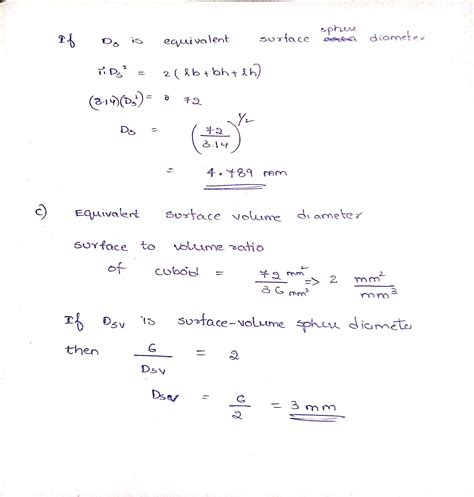 If Ds is equivalent surface sphere diameter
πDs² = 2(lb+bh+lh)
(3.14)(Ds²) = 72
Ds = (72/3.14)^1/2
= 4.789 mm
c) Equivalent surface volume diameter
surface to volume ratio
of cuboid = 72 mm²/36 mm³ => 2 mm²/mm³
If Dsv is surface-volume sphere diameter
then 6/Dsv = 2
Dsv = 6/2 = 3mm